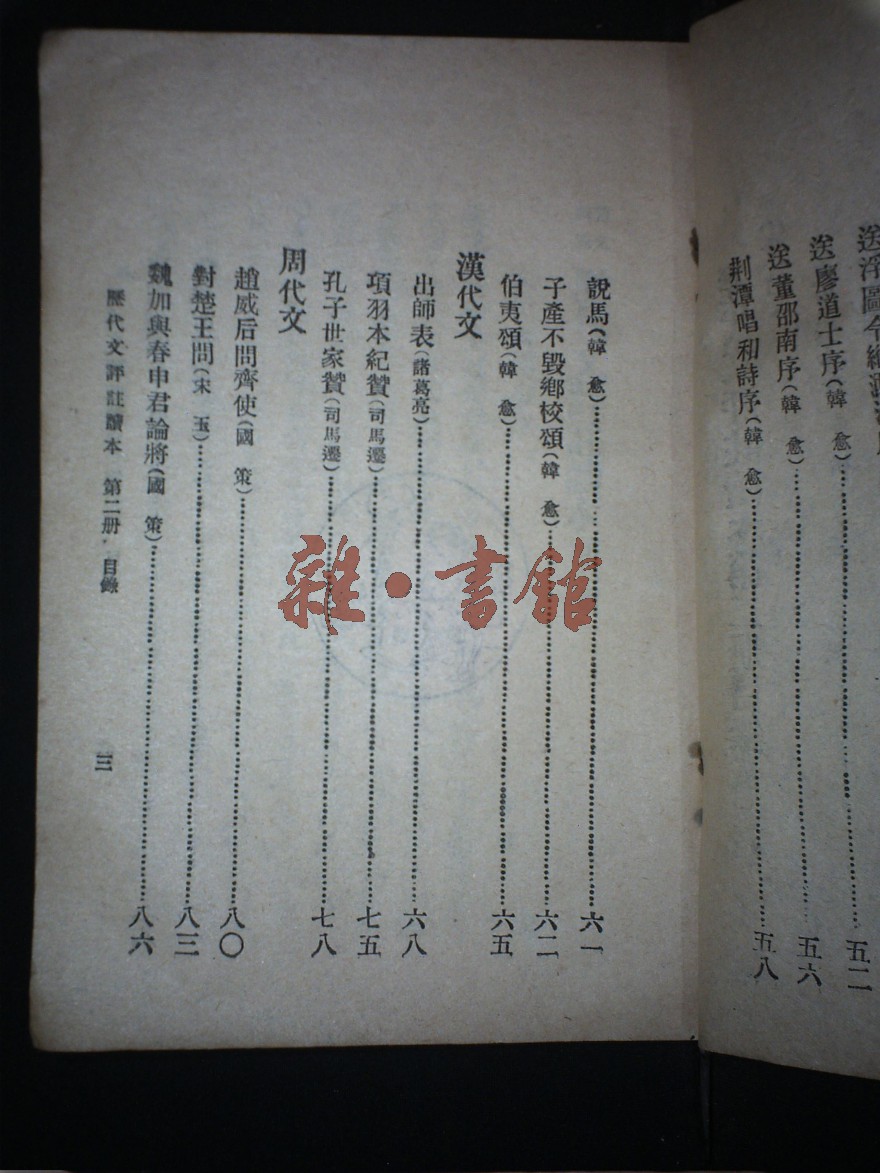 送廖道士序(韓愈)……五二
送董邵南序(韓愈)……五六
荆潭唱和詩序(韓愈)……五八
説馬(韓愈)……六一
子產不毀鄉校頌(韓愈)……六二
伯夷頌(韓愈)……六五
漢代文
出師表(諸葛亮)……六八
項羽本紀贊(司馬遷)……七五
孔子世家贊(司馬遷)……七八
周代文
趙威后問齊使(國策)……八〇
對楚王問(宋玉)……八三
魏加與春申君論將(國策)……八六
歷代文評註讀本 第二册·目錄
三
雜·書館